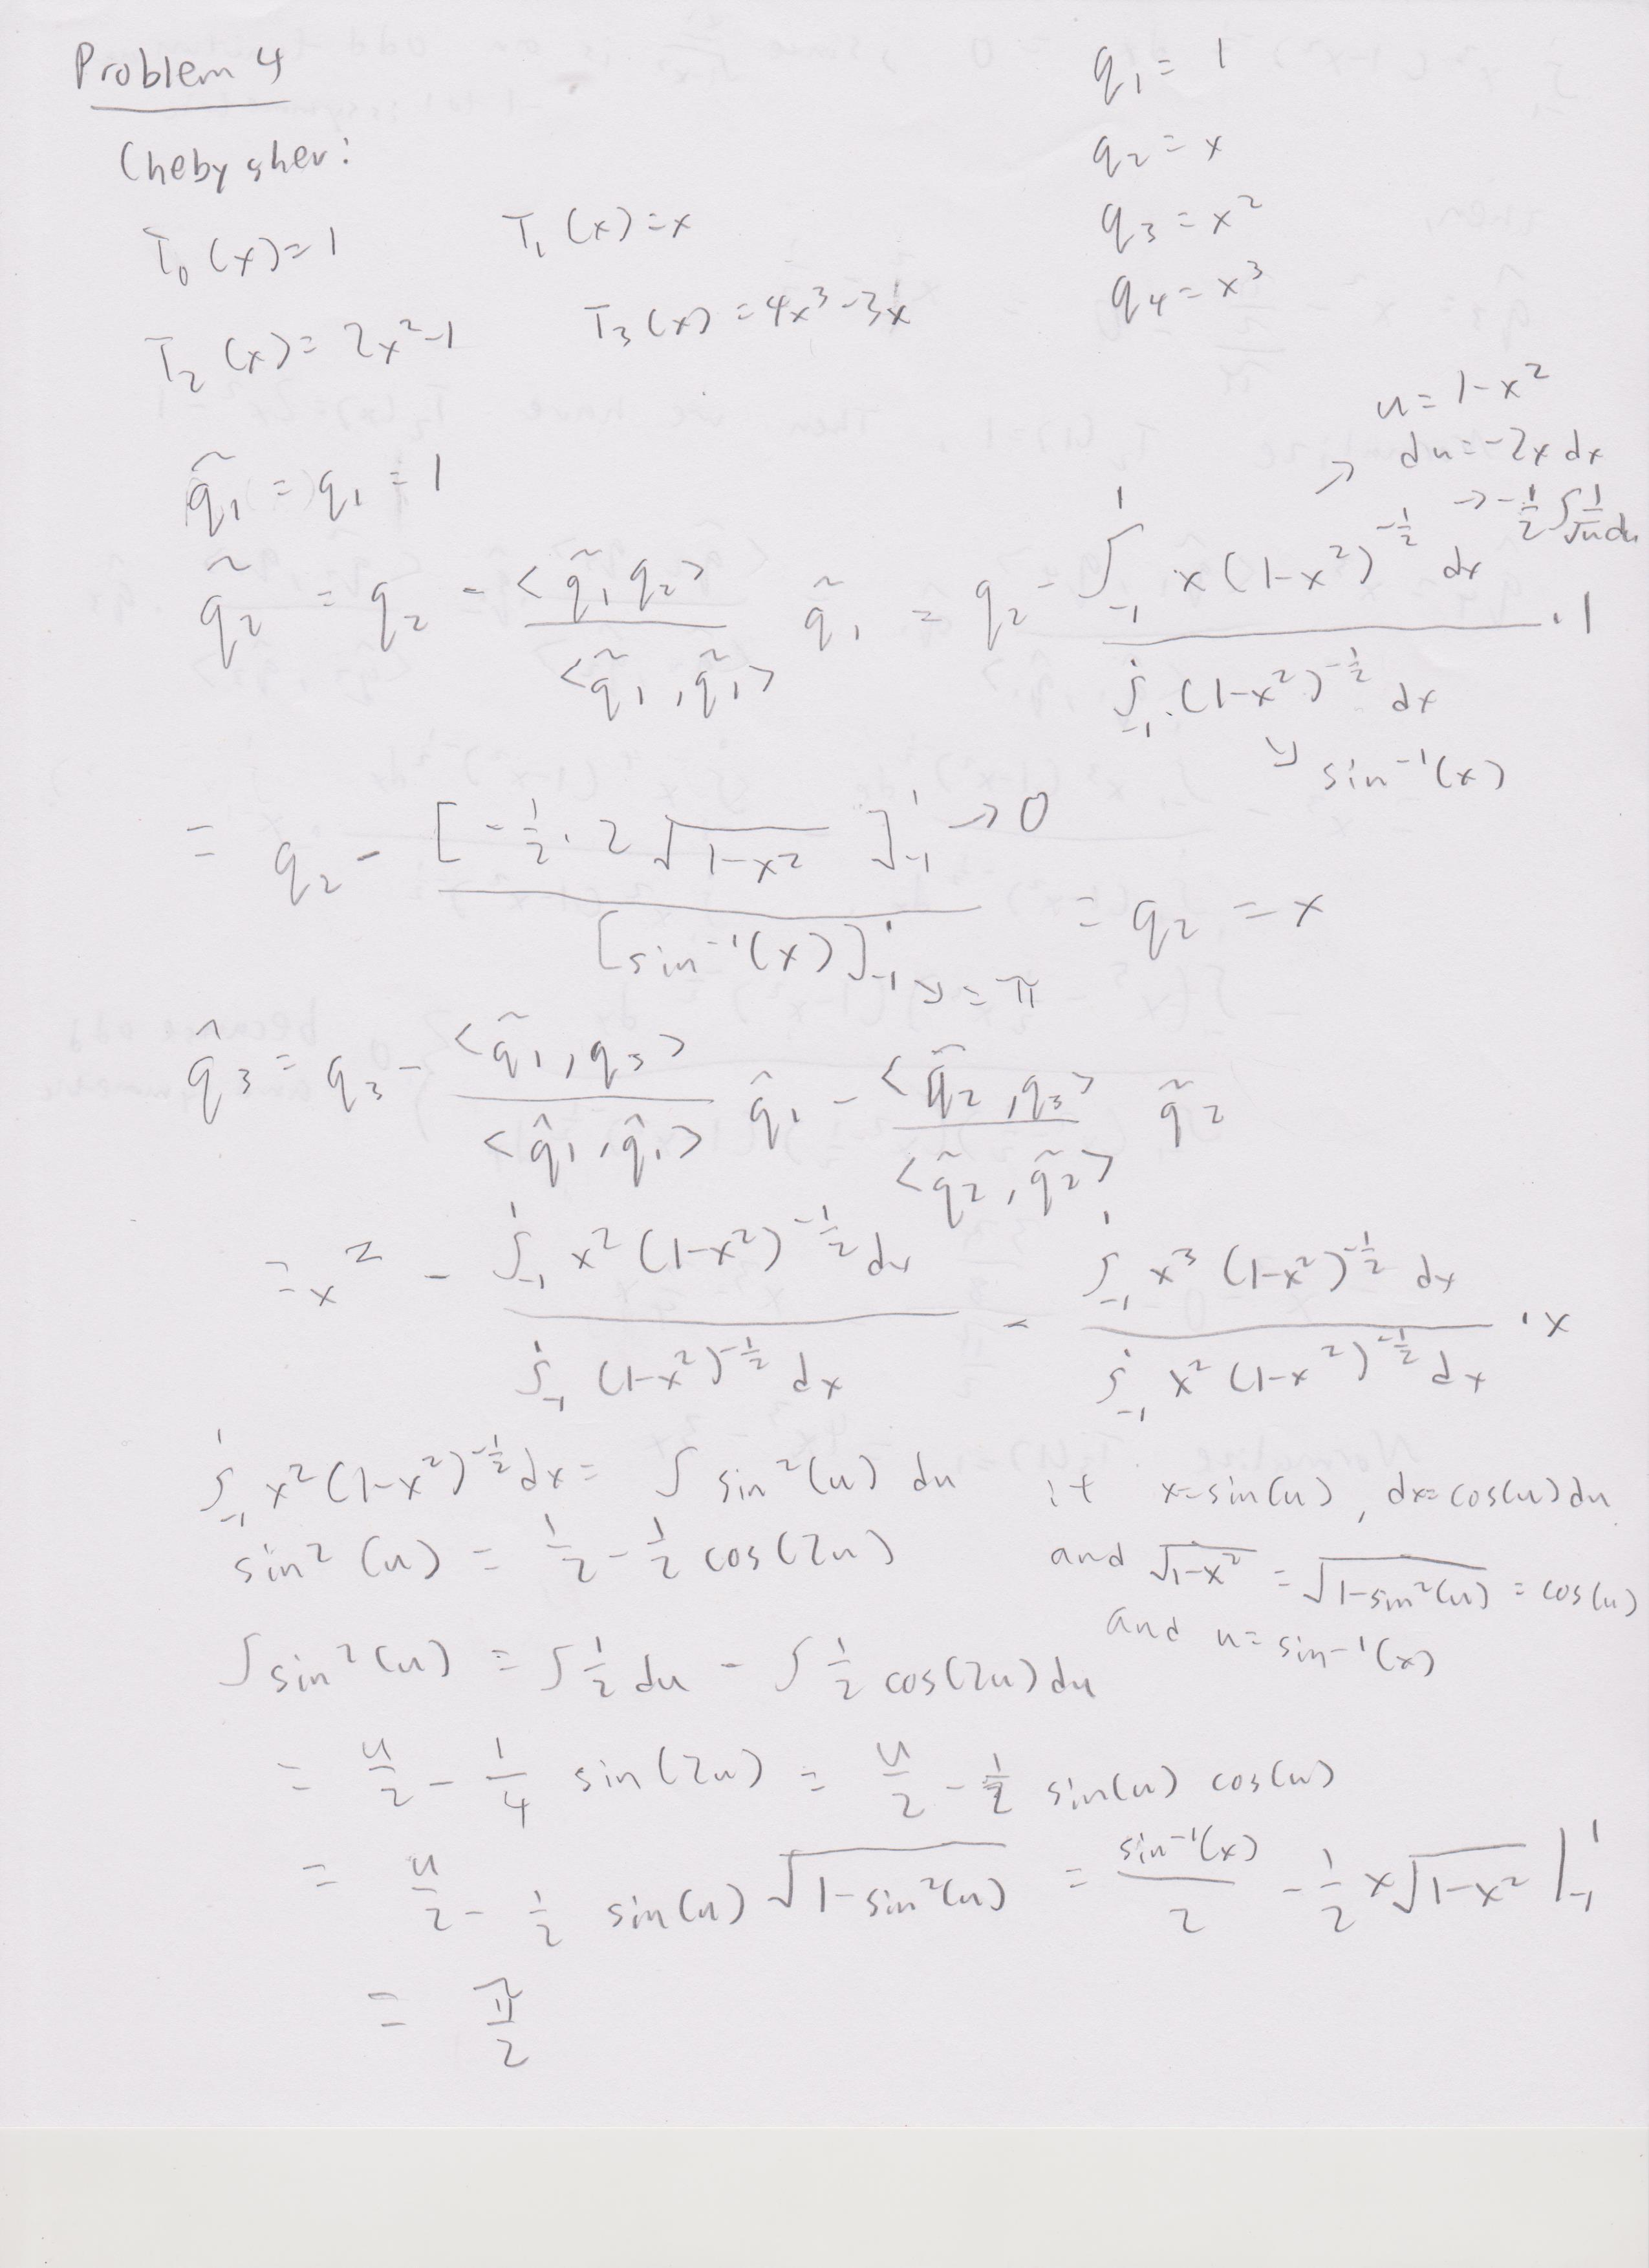 Problem 4
q₁ = 1
Chebyshev:
q₂ = x
T₀(x)=1    T₁(x)=x
q₃ = x²
T₂(x)= 2x²-1    T₃(x) = 4x³-3x
q₄ = x³
u = 1-x²
→ du = -2x dx
→ -1/2 ∫ 1/√u du
q̃₁ = q₁ = 1
q̃₂ = q₂ - <q̃₁, q₂> / <q̃₁, q̃₁> q̃₁ = q₂ - ∫₋₁¹ x(1-x²)^(-1/2) dx / ∫₋₁¹ (1-x²)^(-1/2) dx · 1
↘ sin⁻¹(x)
= q₂ - [-1/2 · 2√(1-x²)]₋₁¹ → 0 / [sin⁻¹(x)]₋₁¹ ↘ = π = q₂ = x
q̂₃ = q₃ - <q̃₁, q₃> / <q̂₁, q̂₁> q̂₁ - <q̃₂, q₃> / <q̃₂, q̃₂> q̃₂
= x² - ∫₋₁¹ x²(1-x²)^(-1/2) dx / ∫₋₁¹ (1-x²)^(-1/2) dx - ∫₋₁¹ x³(1-x²)^(-1/2) dx / ∫₋₁¹ x²(1-x²)^(-1/2) dx · x
∫₋₁¹ x²(1-x²)^(-1/2) dx = ∫ sin²(u) du    if x=sin(u), dx=cos(u)du
sin²(u) = 1/2 - 1/2 cos(2u)    and √(1-x²) = √(1-sin²(u)) = cos(u)
and u = sin⁻¹(x)
∫ sin²(u) = ∫ 1/2 du - ∫ 1/2 cos(2u) du
= u/2 - 1/4 sin(2u) = u/2 - 1/2 sin(u) cos(u)
= u/2 - 1/2 sin(u) √(1-sin²(u)) = sin⁻¹(x)/2 - 1/2 x√(1-x²) |₋₁¹
= π/2